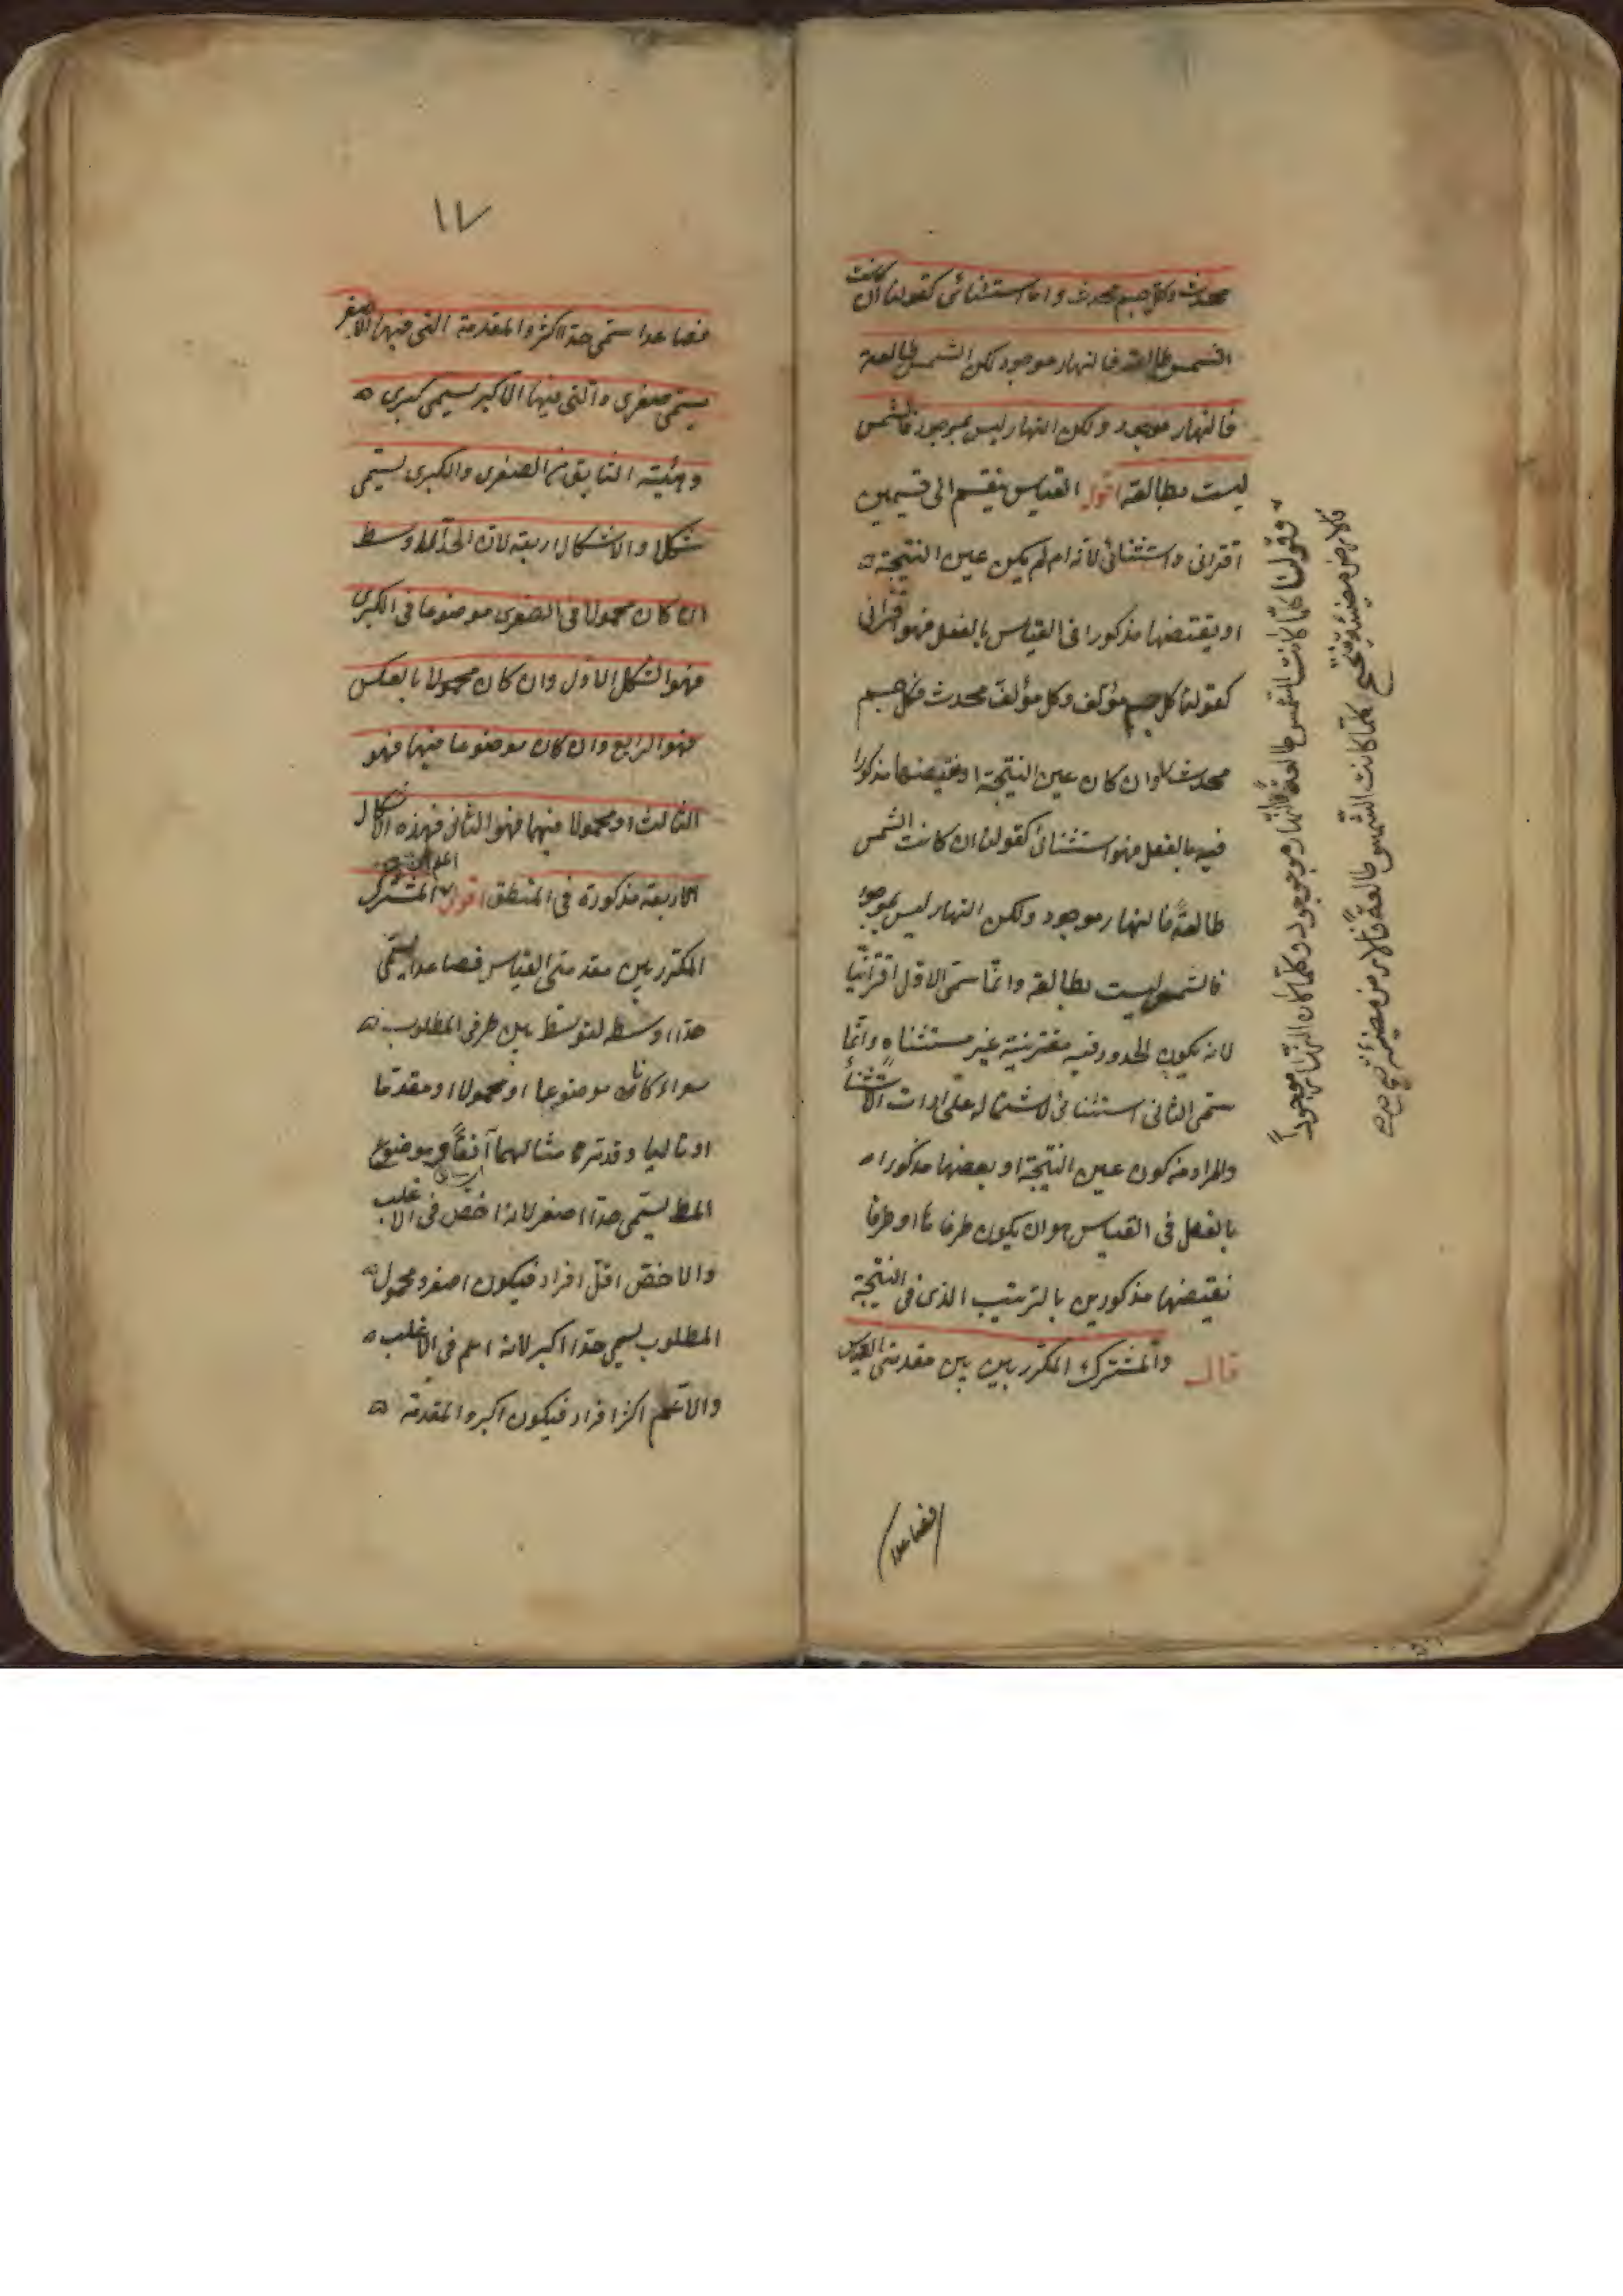 محدث وكل جسم محدث واما استثنائى كقولنا ان كانت
الشمس طالعة فالنهار موجود لكن الشمس طالعة
فالنهار موجود ولكن النهار ليس بموجود فالشمس
ليست بطالعة اقول القياس ينقسم الى قسمين
اقترانى واستثنائى لانه ان لم يكن عين النتيجة
او نقيضها مذكورا فى القياس بالفعل فهو اقترانى
كقولنا كل جسم مؤلف وكل مؤلف محدث فكل جسم
محدث وان كان عين النتيجة او نقيضها مذكورا
فيه بالفعل فهو استثنائى كقولنا ان كانت الشمس
طالعةً فالنهار موجود ولكن النهار ليس بموجود
فالشمس ليست بطالعة وانّما سمّى الاول اقترانيّا
لانه يكون الحدود فيه مقترنة غير مستثناه وانّما
سمّى الثانى استثنائى لاشتماله على ادات الاستثناء
والمراد من كون عين النتيجة او بعضها مذكورا
بالفعل فى القياس هو ان يكون طرفاها او طرفا
نقيضها مذكورين بالترتيب الذى فى النتيجة
قال والمشترك المكرّر بين بين مقدمتى القياس
فصاعدا
وقولنا كلّما كانت الشمس طالعةً فالنهار موجود وكلّما كان النهار موجوداً
فالارض مضيئة ينتج كلّما كانت الشمس طالعةً فالارض مضيئة
١٧
فصاعدا سمّى حدّا اكثر والمقدمة التى فيها الاصغر
يسمّى صغرى والتى فيها الاكبر يسمى كبرى
وهيئة التأليف من الصغرى والكبرى يسمّى
شكلا والاشكال اربعة لان الحدّ الاوسط
ان كان محمولا فى الصغرى موضوعا فى الكبرى
فهو الشكل الاوّل وان كان محمولا بالعكس
فهو الرابع وان كان موضوعا فيها فهو
الثالث او محمولا فيهما فهو الثانى فهذه الاشكال
الاربعة مذكورة فى المنطق اقول المشترك
المكرّر بين مقدمتى القياس فصاعدا يسمّى
حدّا اوسط لتوسّط بين طرفى المطلوب
سواء كان موضوعا او محمولا او مقدّما
او تاليا وقد مثالهما آنفاً وموضوع
المط يسمّى حدّا اصغر لانه اخصّ فى الاغلب
والاخصّ اقلّ افراد فيكون اصغر ومحمول
المطلوب يسمى حدّا اكبر لانه اعم فى الاغلب
والاعم اكثر افراد فيكون اكبر والمقدمة